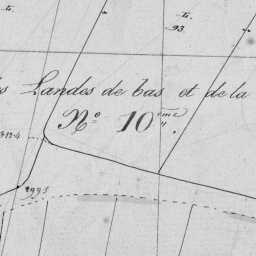 ti.
93
ti.
s Landes de bas et de la
N.o 10.eme